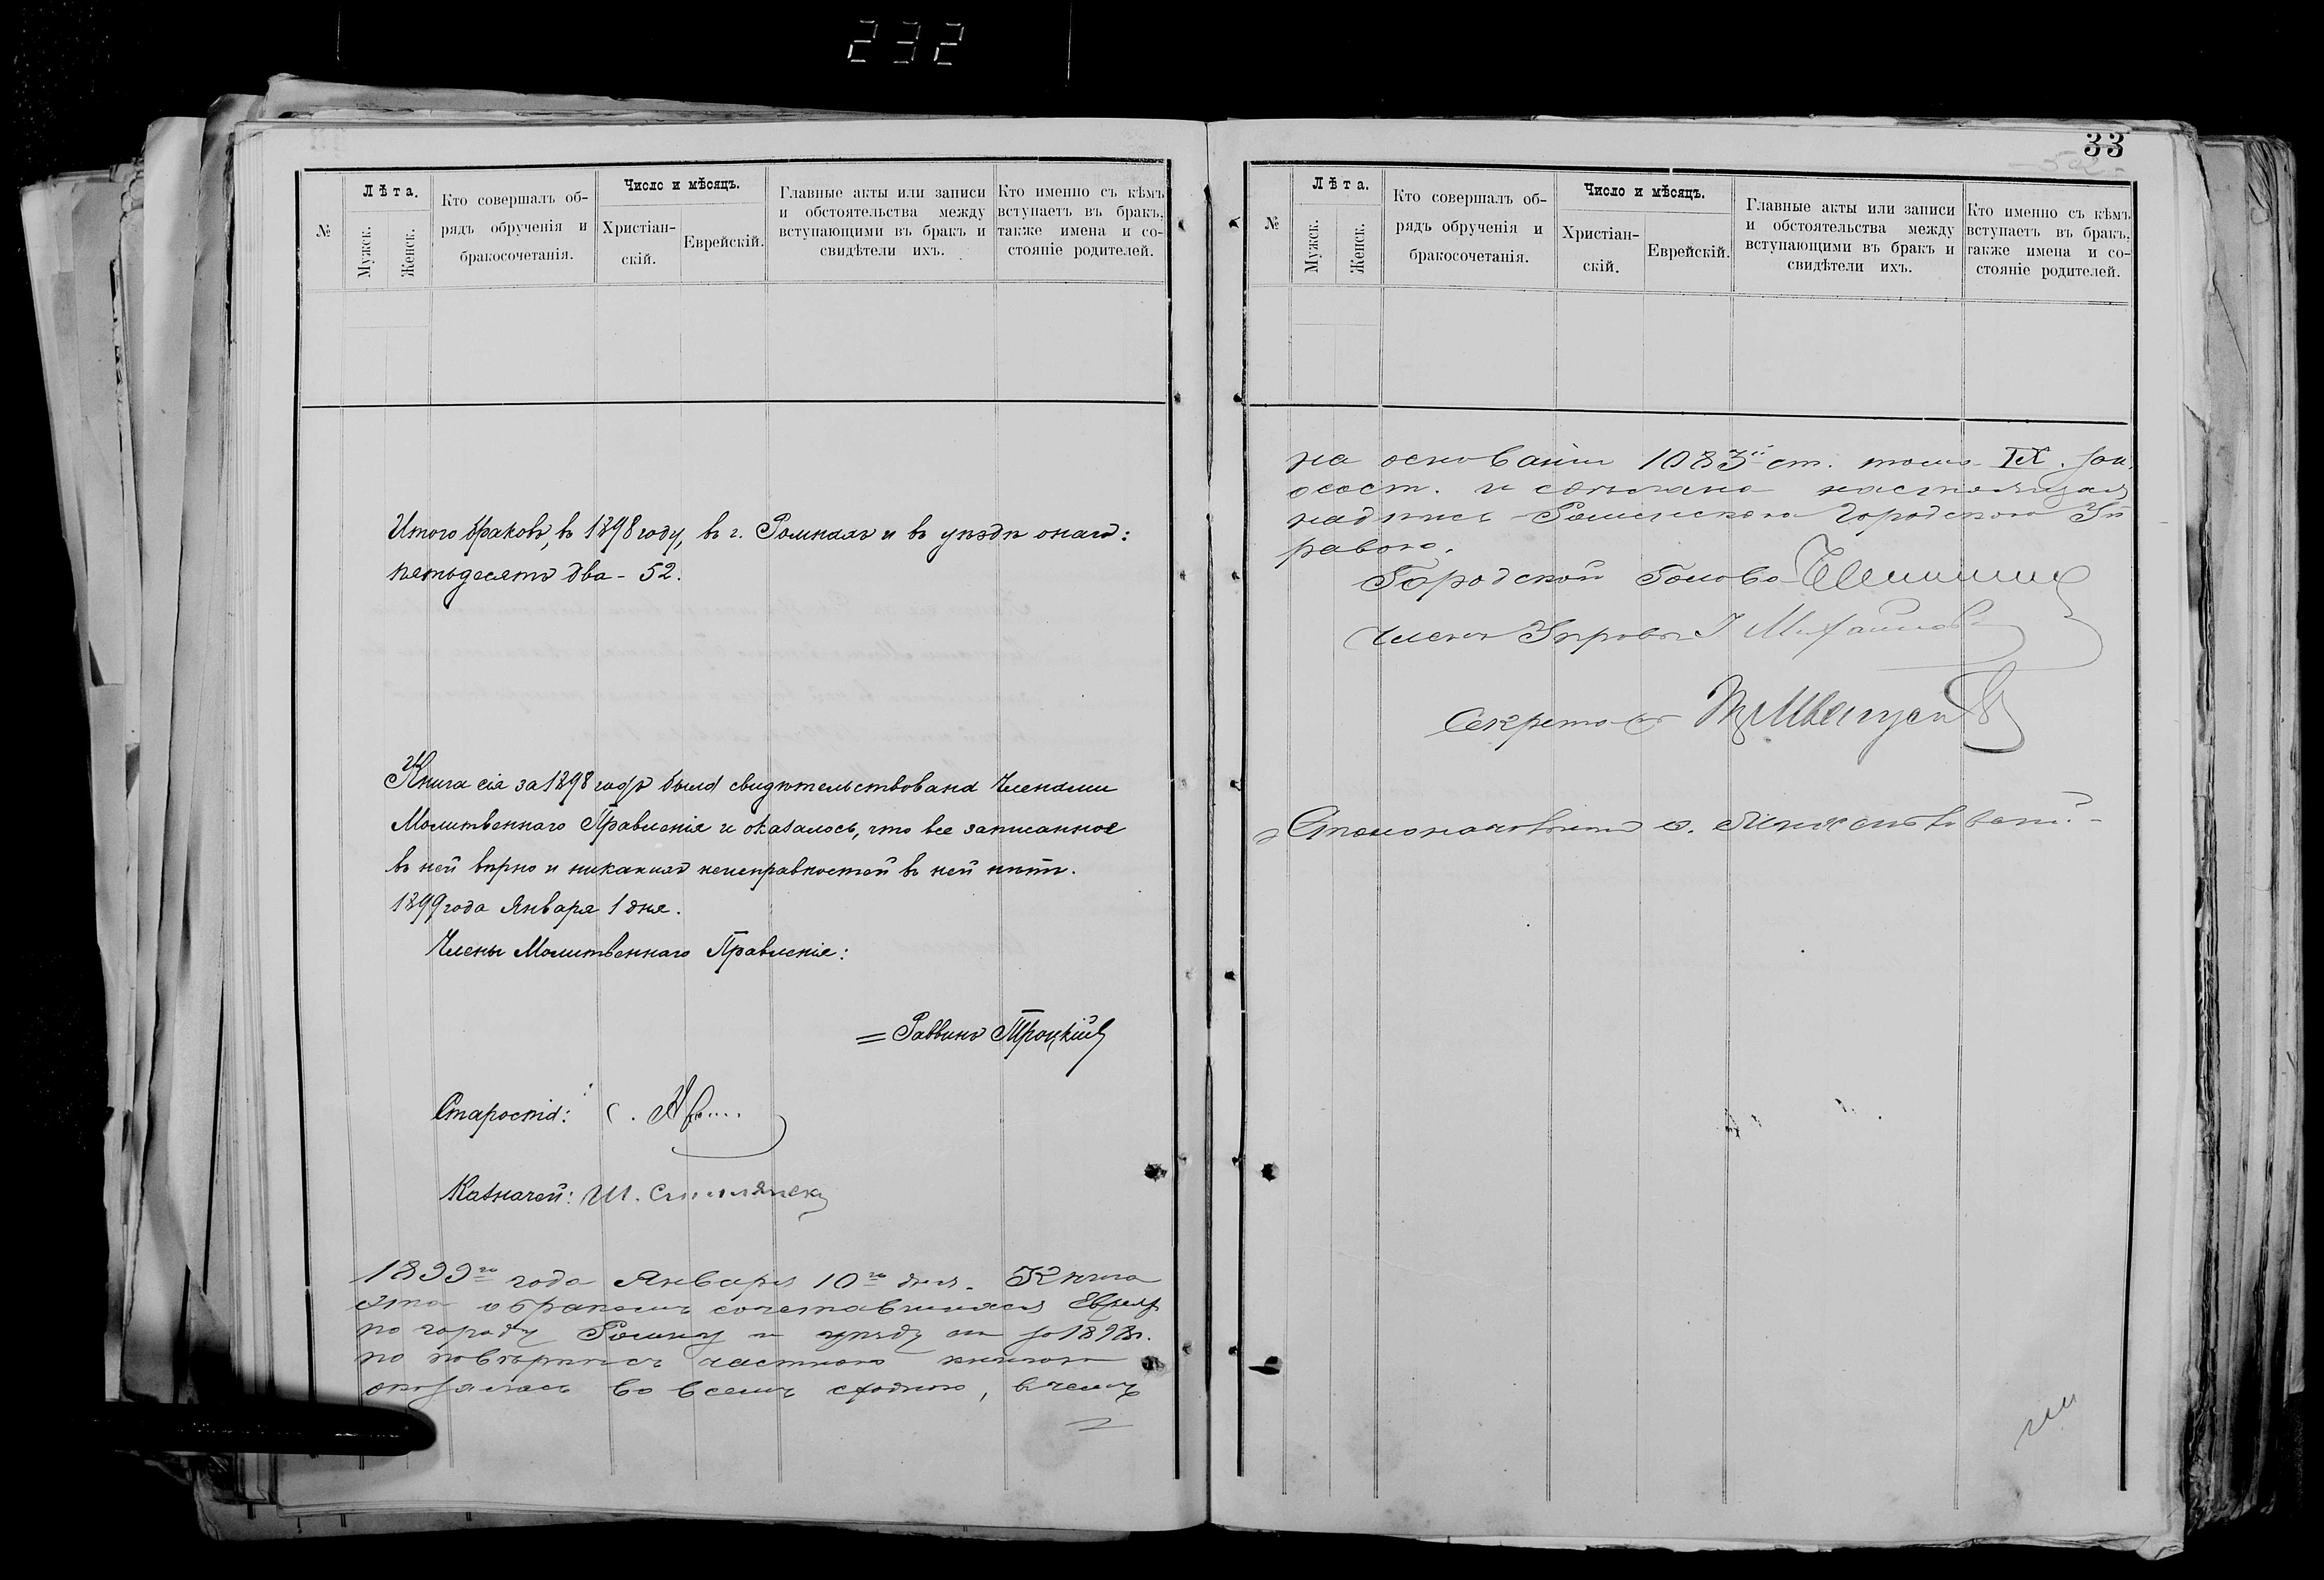 232
№
Лѣта.
Мужск.
Женск.
Кто совершалъ об-
рядъ обрученія и
бракосочетанія.
Число и мѣсяцъ.
Христіан-
скій.
Еврейскій.
Главные акты или записи
и обстоятельства между
вступающими въ бракъ и
свидѣтели ихъ.
Кто именно съ кѣмъ
вступаетъ въ бракъ,
также имена и со-
стояніе родителей.
Итого браковъ, въ 1898 году, въ г. Ромнахъ и въ уѣздѣ онаго:
пятьдесятъ два - 52.
Книга сія за 1898 годъ была свидѣтельствована Членами
Молитвеннаго Правленія и оказалось, что все записанное
въ ней вѣрно и никакихъ неисправностей въ ней нѣтъ.
1899 года Января 1 дня.
Члены Молитвеннаго Правленія:
= Раввинъ Троцкій
Староста: С.
Казначей: Ш.
1899го года Января 10го дня. Книга
эта о бракомъ сочетавшихся Евреяхъ
по городу Ромну и уѣзду за 1898 г.
по повѣркѣ съ частною книгою
оказалась во всемъ сходною, въ чемъ
33
№
Лѣта.
Мужск.
Женск.
Кто совершалъ об-
рядъ обрученія и
бракосочетанія.
Число и мѣсяцъ.
Христіан-
скій.
Еврейскій.
Главные акты или записи
и обстоятельства между
вступающими въ бракъ и
свидѣтели ихъ.
Кто именно съ кѣмъ
вступаетъ въ бракъ,
также имена и со-
стояніе родителей.
на основаніи 1083й ст. тома IX. зак.
о сост. и сдѣлана настоящая
надпись Роменскою Городскою Уп
равою.
Городской Голова
Членъ Управы І Михайловъ
Секретарь
Столоначальникъ